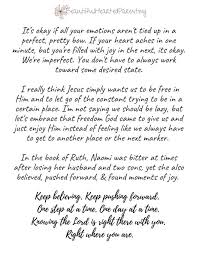 FaithfulHeartsPoentry
It's okay if all your emotions aren't tied up in a
perfect, pretty bow. If your heart aches in one
minute, but you're filled with joy in the next, its okay.
We're imperfect. You don't have to always work
toward some desired state.
I really think Jesus simply wants us to be free in
Him and to let go of the constant trying to be in a
certain place. I'm not saying we should be lazy, but
let's embrace that freedom God came to give us and
just enjoy Him instead of feeling like we always have
to get to another place or the next marker.
In the book of Ruth, Naomi was bitter at times
after losing her husband and two sons, yet she also
believed, pushed forward, & found moments of joy.
Keep believing. Keep pushing forward.
One step at a time. One day at a time.
Knowing the Lord is right there with you,
Right where you are.